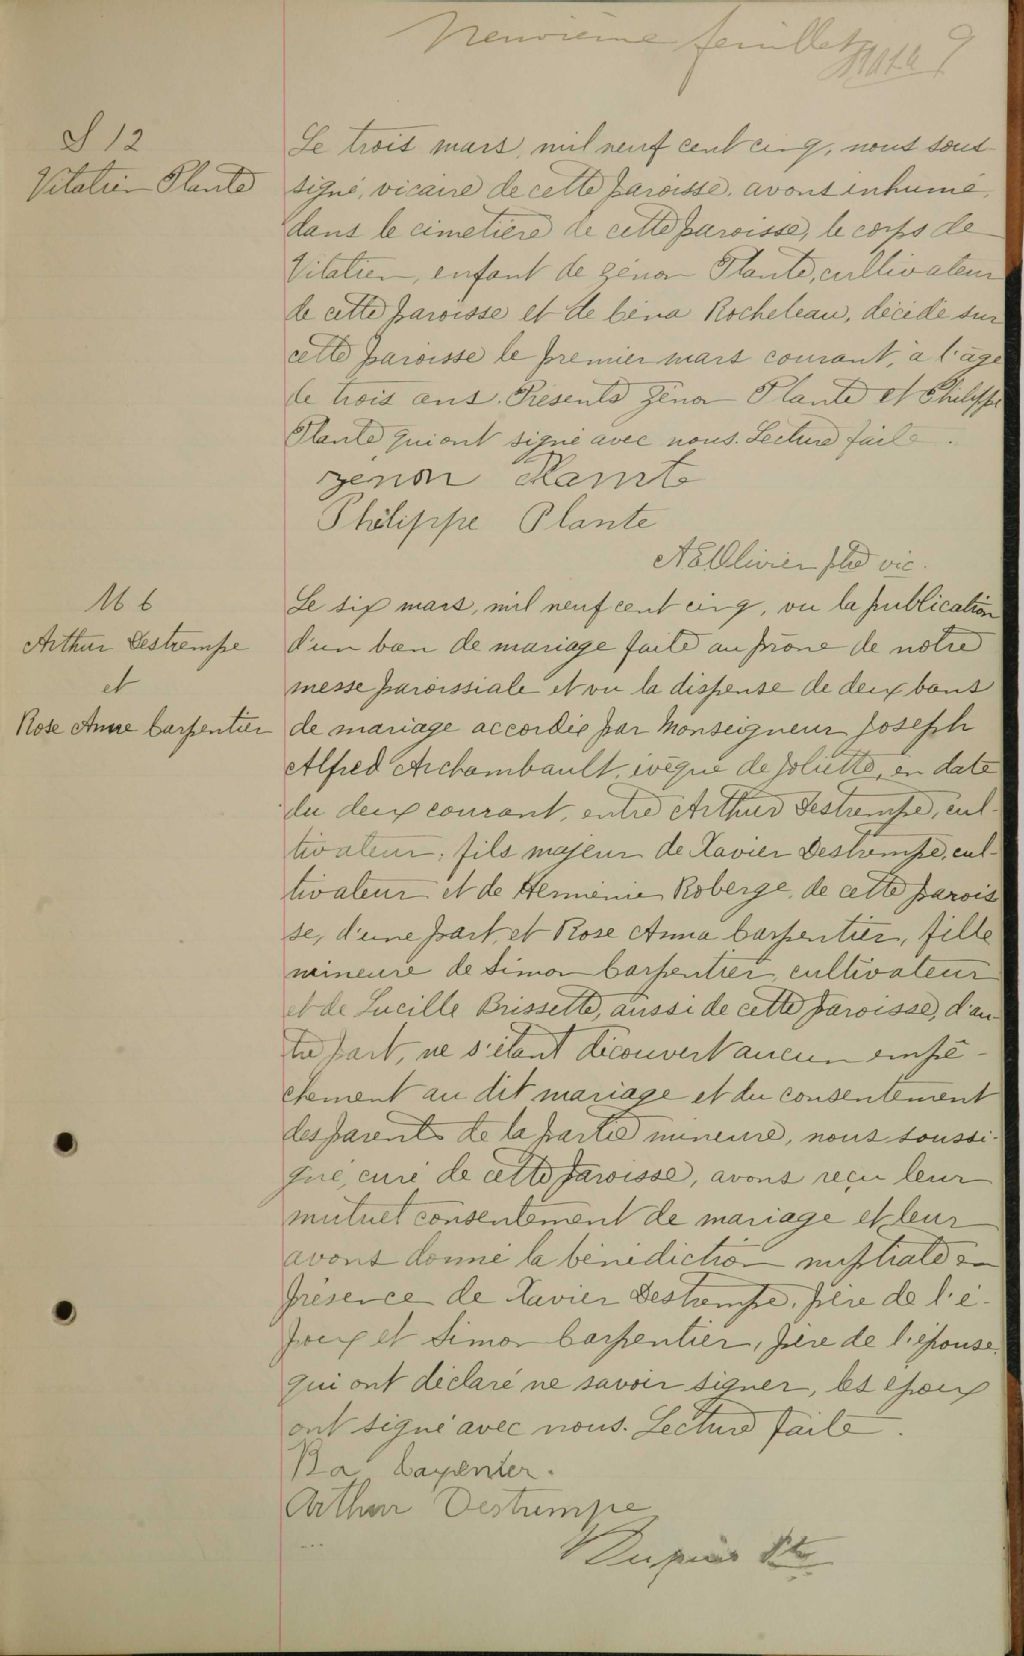 Neuvième feuillet 9
S 12
Vitalien Plante
Le trois mars, mil neuf cent cinq, nous sous-
signé, vicaire de cette paroisse, avons inhumé,
dans le cimetière de cette paroisse, le corps de
Vitalien, enfant de Zénon Plante, cultivateur
de cette paroisse et de Céna Rocheleau, décédé sur
cette paroisse le premier mars courant, à l'âge
de trois ans. Présents Zénon Plante et Philippe
Plante qui ont signé avec nous. Lecture faite.
zénon Plante
Philippe Plante
A E Olivier ptre vic.
M 6
Arthur Destrempe
et
Rose Anna Carpentier
Le six mars, mil neuf cent cinq, vu la publication
d'un ban de mariage faite au prône de notre
messe paroissiale et vu la dispense de deux bans
de mariage accordée par Monseigneur Joseph
Alfred Archambault, évêque de Joliette, en date
du deux courant, entre Arthur Destrempe, cul-
tivateur, fils majeur de Xavier Destrempe, cul-
tivateur et de Herménie Roberge, de cette parois
se, d'une part, et Rose Anna Carpentier, fille
mineure de Simon Carpentier, cultivateur
et de Lucille Brissette, aussi de cette paroisse, d'au-
tre part, ne s'étant découvert aucun empê-
chement au dit mariage et du consentement
des parents de la partie mineure, nous soussi-
gné, curé de cette paroisse, avons reçu leur
mutuel consentement de mariage et leur
avons donné la bénédiction nuptiale en
présence de Xavier Destrempe, père de l'é-
poux et Simon Carpentier, père de l'épouse,
qui ont déclaré ne savoir signer, les époux
ont signé avec nous. Lecture faite.
R a Carpenter.
Arthur Destrempe
Dupuis Ptre